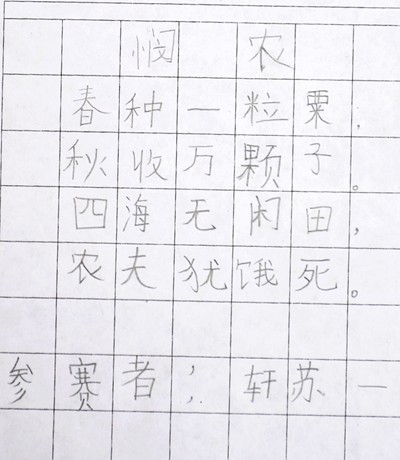 悯农
春种一粒粟,
秋收万颗子。
四海无闲田,
农夫犹饿死。
参赛者:轩苏一